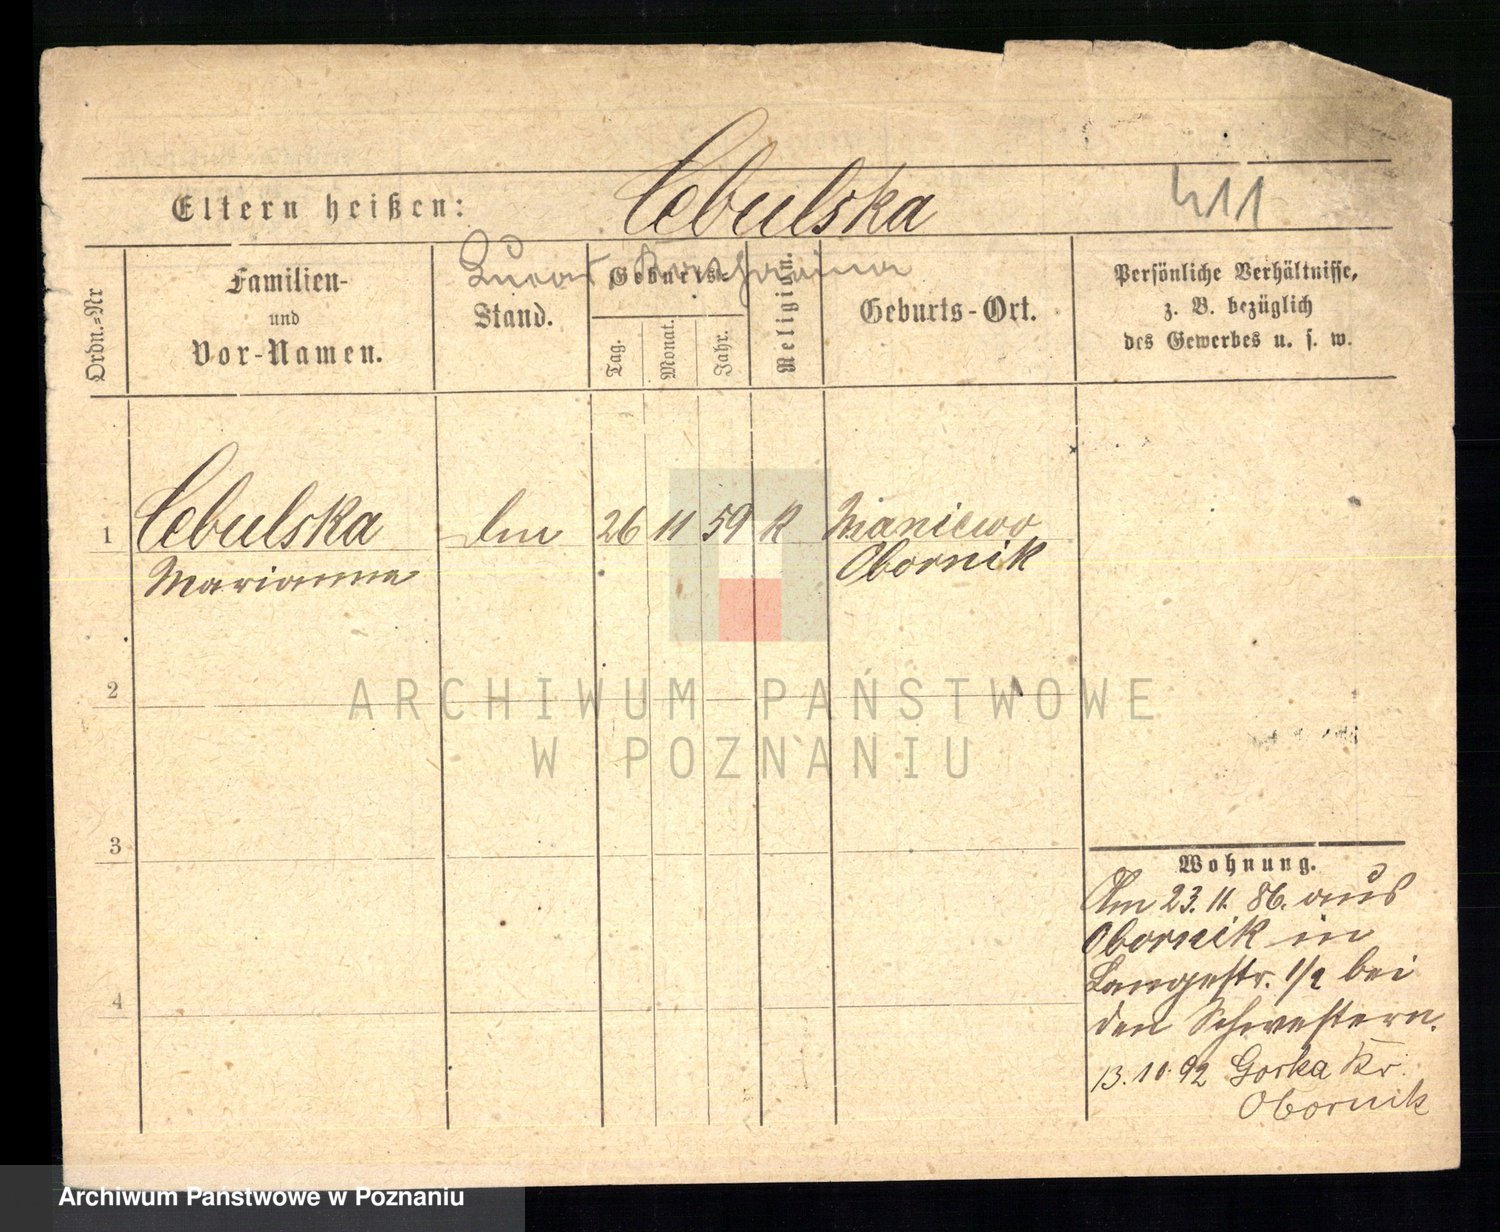 Cebulska
411
Eltern heißen:
Lucas, Katharina
Ordn.=Nr
Familien-
und
Vor-Namen.
Stand.
Geburts-
Tag.
Monat.
Jahr.
Religion.
Geburts-Ort.
Persönliche Verhältnisse,
z. B. bezüglich
des Gewerbes u. s. w.
1
Cebulska
Marianna
26
11
59
K
Maniewo
Obornik
2
ARCHIWUM PAŃSTWOWE
W POZNANIU
3
4
Wohnung.
Am 23. 11. 86. aus
Obornik in
Langestr. 1/2 bei
den Schwestern.
13.10.92 Gorka Kr.
Obornik
Archiwum Państwowe w Poznaniu